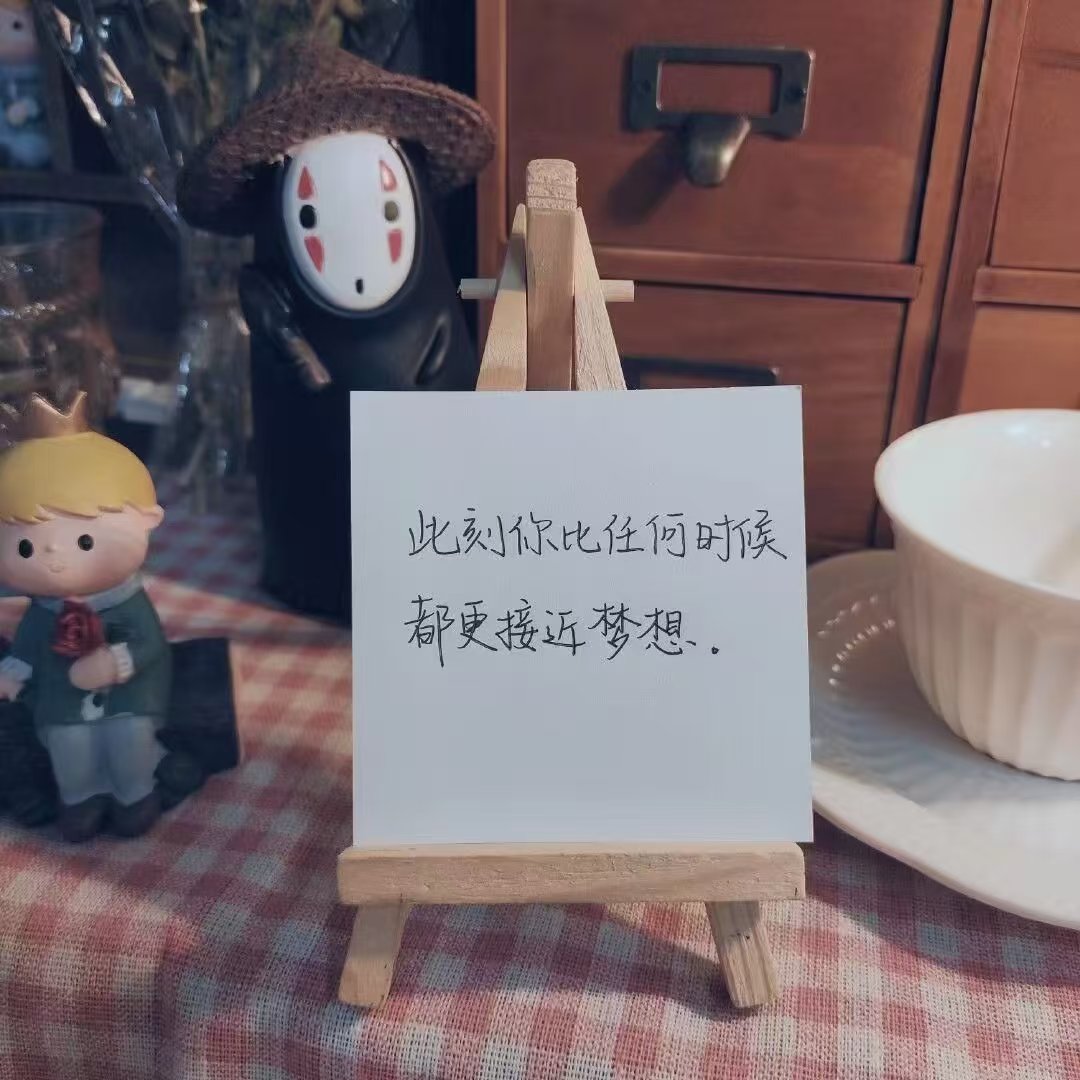 此刻你比任何时候
都更接近梦想.